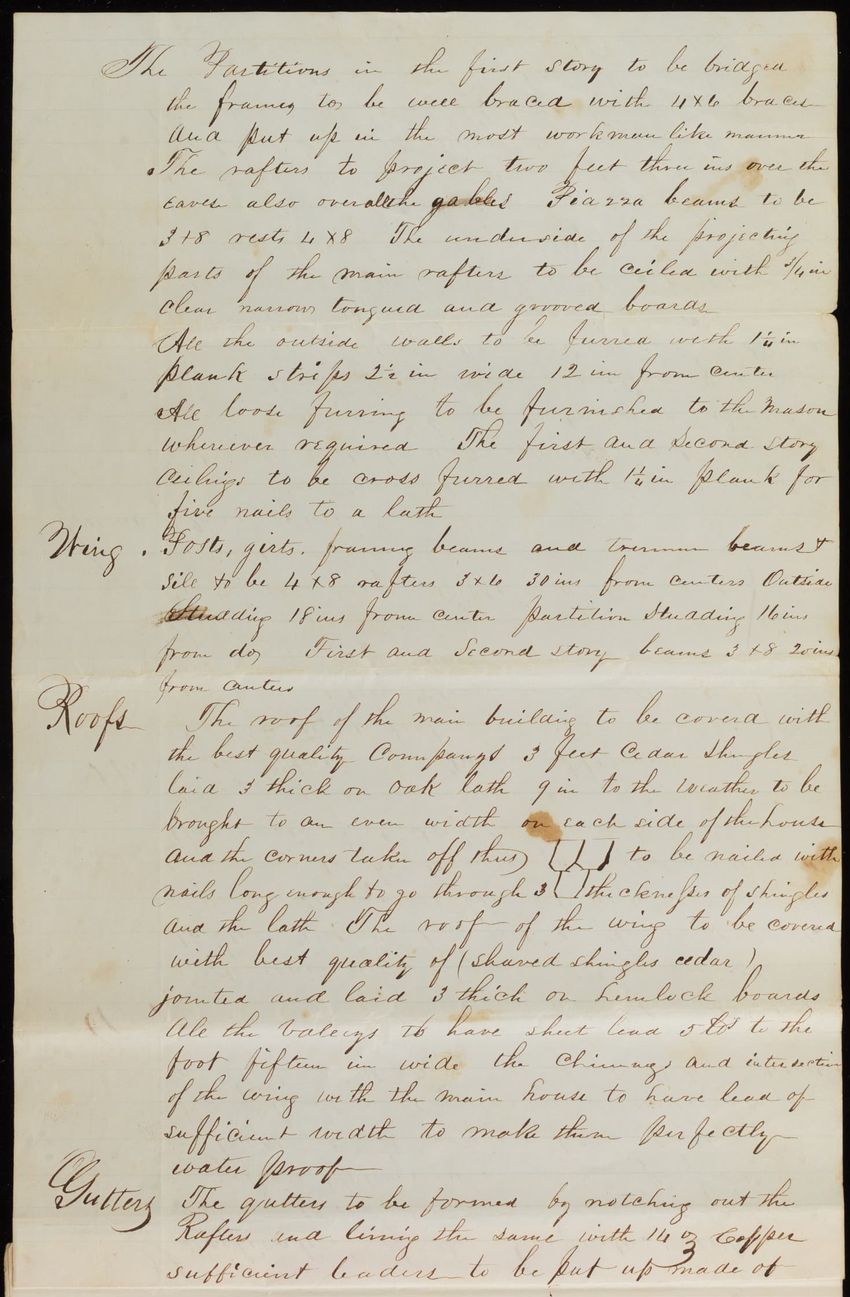 The Partitions in the first story to be bridged
the frames to be well braced with 4x6 braces
and put up in the most workman like manner
The rafters to project two feet three ins over the
eaves also over all the gables Piazza beams to be
3+8 rests 4x8 The underside of the projecting
parts of the main rafters to be ceiled with 3/4 in
clear narrow tongued and grooved boards
All the outside walls to be furred with 1 1/4 in
plank strips 2 1/2 in wide 12 in from center
All loose furring to be furnished to the Mason
wherever required The first and Second story
Ceilings to be cross furred with 1 1/4 in plank for
five nails to a lath
Wing. Posts, girts, framing beams and trimmer beams &
sill to be 4x8 rafters 3x6 30 ins from centers Outside
Studding 18 ins from center partition Studding 16 ins
from do, First and Second story beams 3+8 20 ins
from centers
Roofs The roof of the main building to be coverd with
the best quality Companys 3 feet Cedar Shingles
laid 3 thick on oak lath 9 in to the weather to be
brought to an even width on each side of the house
and the corners taken off thus to be nailed with
nails long enough to go through 3 thicknesses of shingles
and the lath The roof of the wing to be covered
with best quality of (shaved shingles cedar)
jointed and laid 3 thick on hemlock boards
All the Valeys to have sheet lead 5 lbs to the
foot fifteen in wide the Chimneys and intersection
of the wing with the main house to have lead of
sufficient width to make them perfectly
water proof
Gutters The gutters to be formed by notching out the
Rafters and lining the same with 14 oz Copper
sufficient leaders to be put up made of